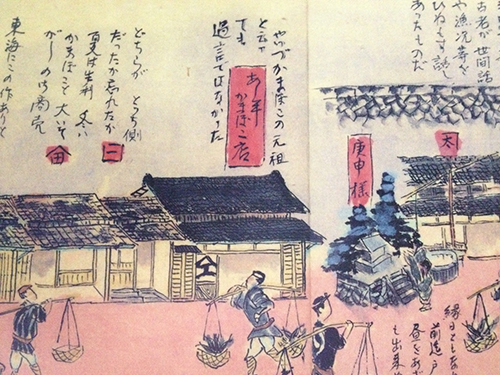 古老が世間話
や漁況等を
ひねもす話し
あったものだ
太
庚申様
縁日ともな
前浜
昼をあざ
も出来
やいづかまぼこの元祖
と云っ
ても
過言ではなかった
かまぼこ店
どちらがどっち側
だったか忘れたが
夏は生利 冬は
かまぼこで大いそ
がしの
一
田
東海にこの作ありと